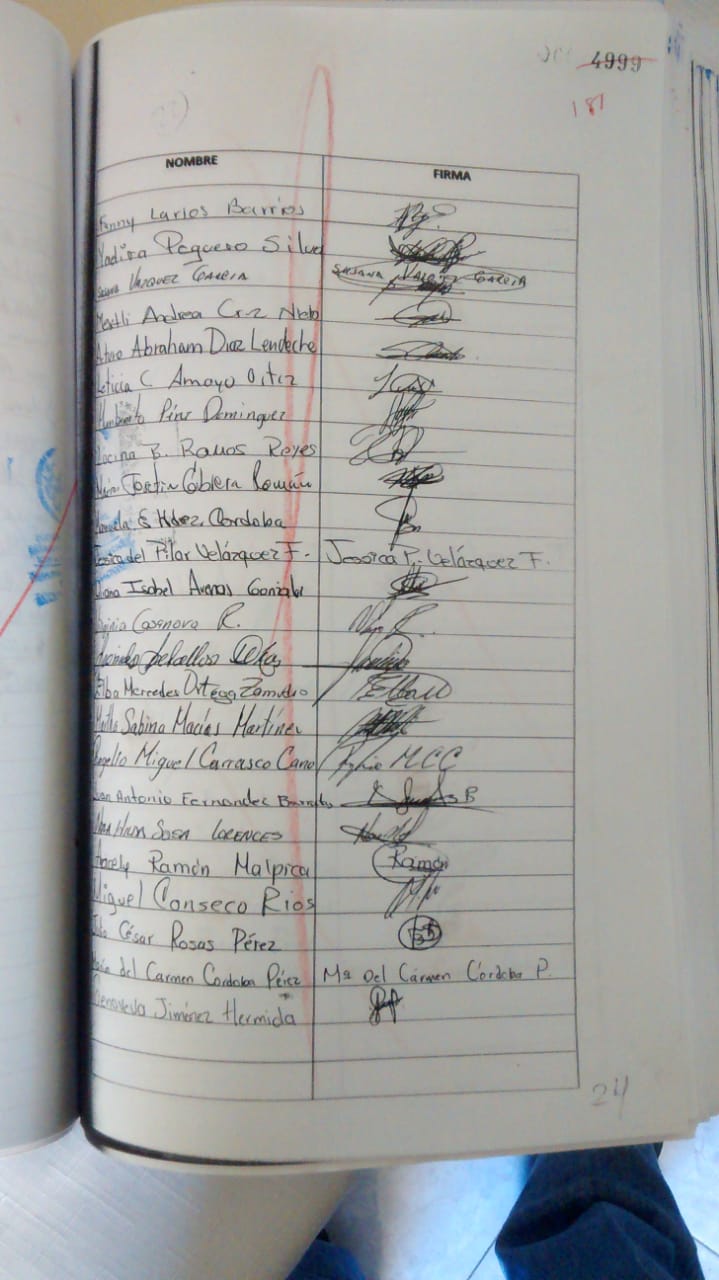 4999
181
NOMBRE FIRMA
Fanny Larios Barrios
Nadira Paguero Silva
Susana Vazquez Garcia SUSANA VAZQUEZ GARCIA
Andrea Cruz Nieto
Arturo Abraham Diaz Lendeche
Leticia C Amayo Ortiz
Humberto Domínguez
B. Ramos Reyes
Cabrera Román
Manuela E Hdez. Cordoba
Jessica del Pilar Velázquez F. Jessica P. Velázquez F.
Diana Isabel Arenas
Virginia Casanova R.
Elba Mercedes Ortega Zamudio Elba
Sabina Macías Martínez
Rogelio Miguel Carrasco Cano MCC
Juan Antonio Fernandez B
Sosa LORENCES
Aracely Ramón Malpica Ramón
Miguel Canseco Rios
Julio César Rosas Pérez
María del Carmen Cordoba Pérez Ma Del Cármen Córdoba P.
Genoveva Jiménez Hermida
24